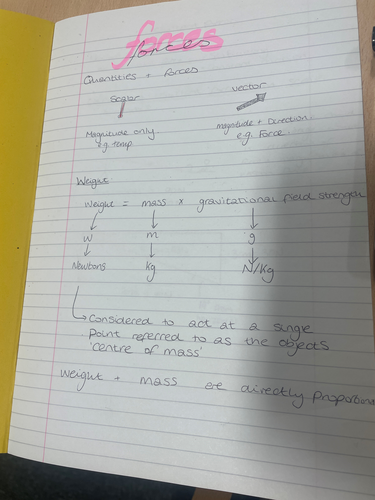 forces
Quantities + forces
Scalar
vector
Magnitude only
e.g. temp
magnitude + Direction
e.g. Force
Weight
Weight = mass x gravitational field strength
W m g
Newtons kg N/kg
Considered to act at a single
Point referred to as the objects
'centre of mass'
Weight + mass are directly